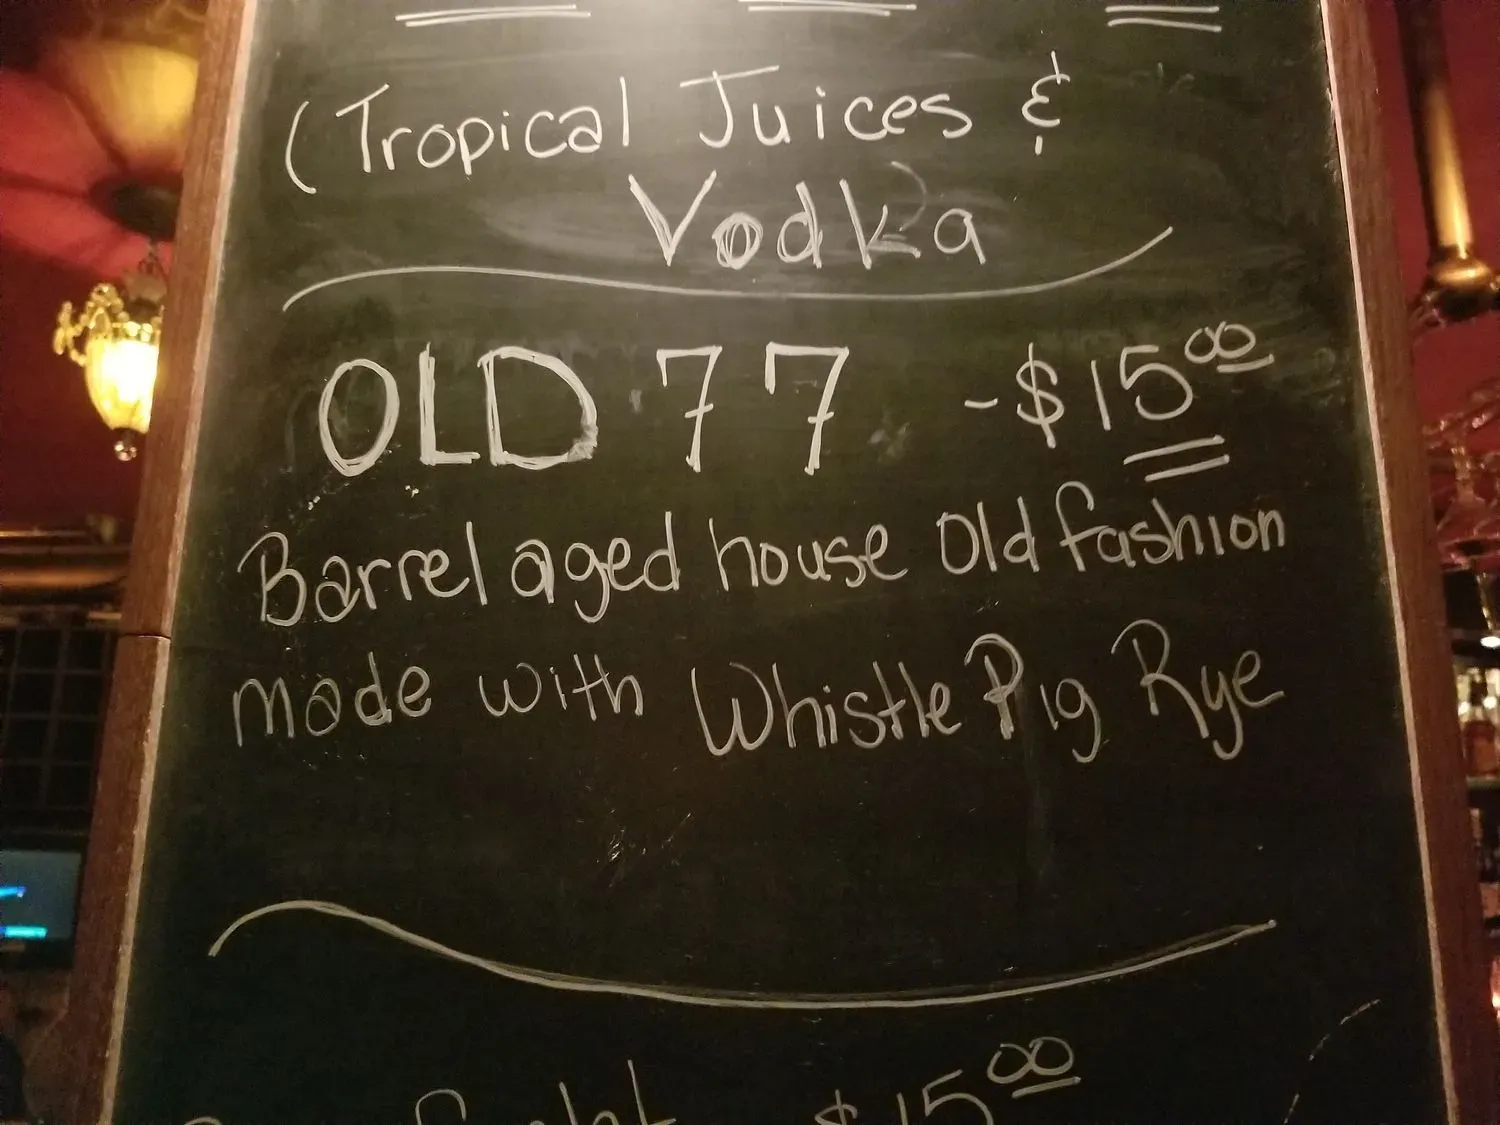 (Tropical Juices &
Vodka
OLD 77 - $15.00
Barrel aged house Old fashion
made with Whistle Pig Rye
$15.00